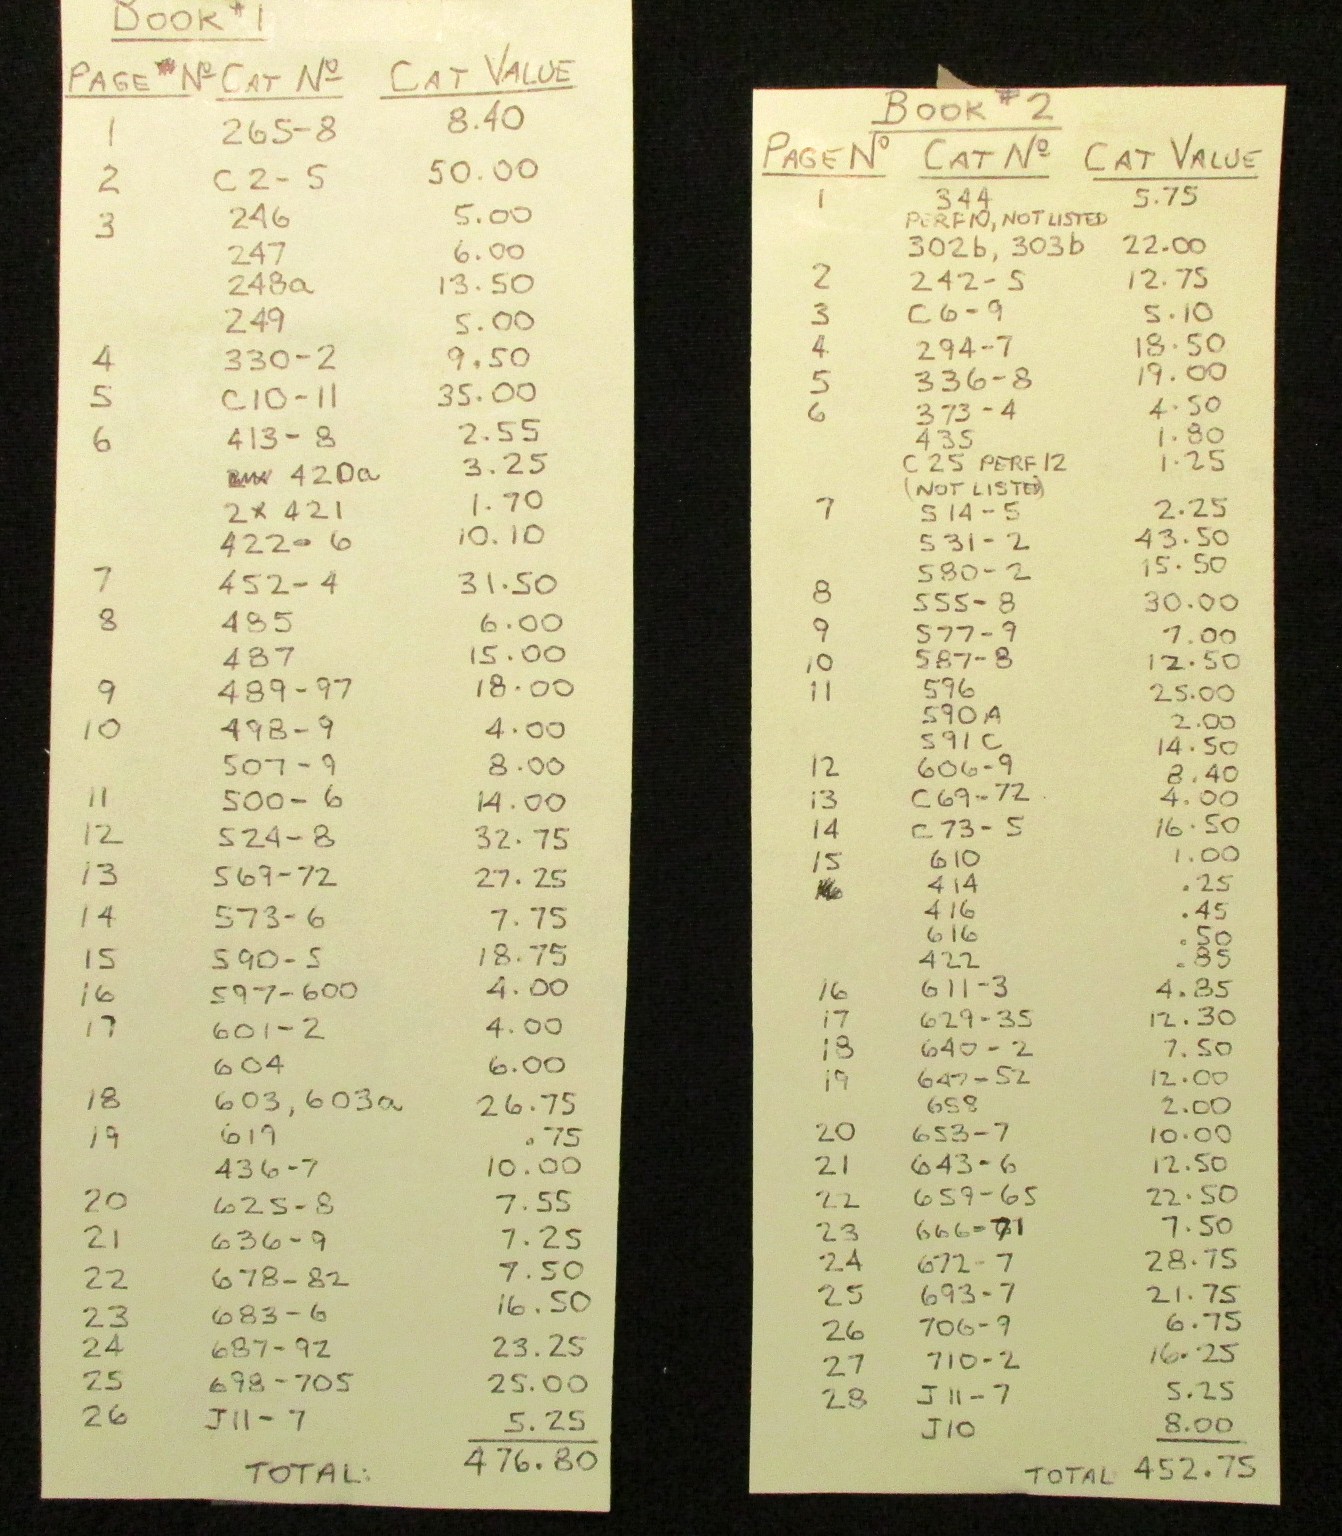 BOOK #1
PAGE Nº CAT Nº CAT VALUE
1 265-8 8.40
2 C2-5 50.00
3 246 5.00
247 6.00
248a 13.50
249 5.00
4 330-2 9.50
5 C10-11 35.00
6 413-8 2.55
420a 3.25
2x 421 1.70
422-6 10.10
7 452-4 31.50
8 485 6.00
487 15.00
9 489-97 18.00
10 498-9 4.00
507-9 8.00
11 500-6 14.00
12 524-8 32.75
13 569-72 27.25
14 573-6 7.75
15 590-5 18.75
16 597-600 4.00
17 601-2 4.00
604 6.00
18 603, 603a 26.75
19 619 .75
436-7 10.00
20 625-8 7.55
21 636-9 7.25
22 678-82 7.50
23 683-6 16.50
24 687-92 23.25
25 698-705 25.00
26 J11-7 5.25
TOTAL: 476.80
BOOK #2
PAGE Nº CAT Nº CAT VALUE
1 344 5.75
PERF 10, NOT LISTED
302b, 303b 22.00
2 242-5 12.75
3 C6-9 5.10
4 294-7 18.50
5 336-8 19.00
6 373-4 4.50
435 1.80
C25 PERF 12 1.25
(NOT LISTED)
7 514-5 2.25
531-2 43.50
580-2 15.50
8 555-8 30.00
9 577-9 7.00
10 587-8 12.50
11 596 25.00
590A 2.00
591C 14.50
12 606-9 8.40
13 C69-72 4.00
14 C73-5 16.50
15 610 1.00
414 .25
416 .45
616 .50
422 .85
16 611-3 4.85
17 629-35 12.30
18 640-2 7.50
19 647-52 12.00
658 2.00
20 653-7 10.00
21 643-6 12.50
22 659-65 22.50
23 666-71 7.50
24 672-7 28.75
25 693-7 21.75
26 706-9 6.75
27 710-2 16.25
28 J11-7 5.25
J10 8.00
TOTAL 452.75